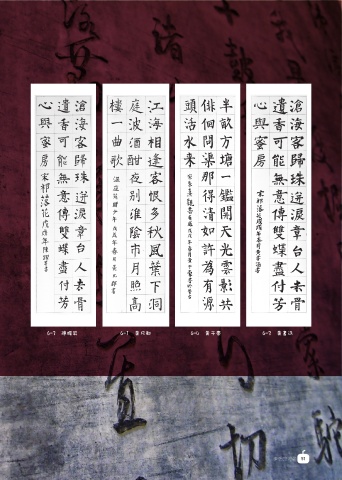 滄海客歸珠迸淚章台人去骨
遺香可能無意傳雙蝶盡付芳
心與蜜房
宋祁落花
半畝方塘一鑑開天光雲影共
徘徊問渠那得清如許為有源
頭活水來
宋朱熹觀書有感戊戌年春月
江海相逢客恨多秋風葉下洞
庭波酒酣夜別淮陰市月照高
樓一曲歌
溫庭筠贈少年戊戌年春月
滄海客歸珠迸淚章台人去骨
遺香可能無意傳雙蝶盡付芳
心與蜜房
宋祁落花戊戌年陳
切